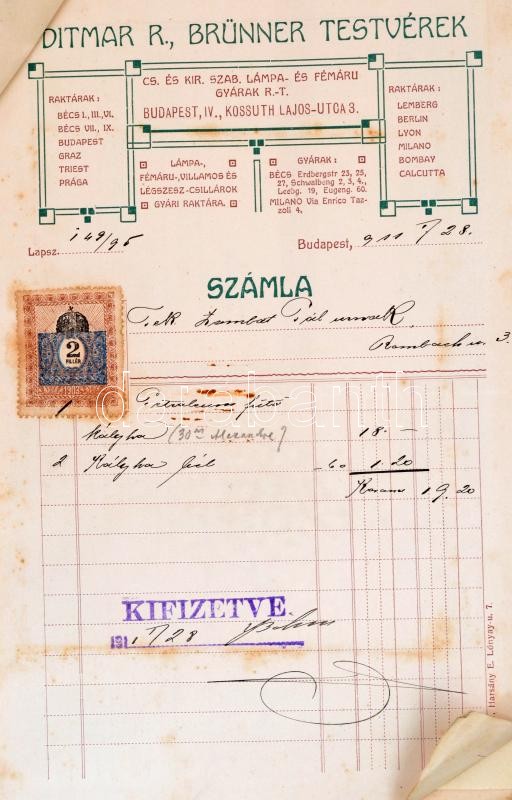 DITMAR R., BRÜNNER TESTVÉREK
CS. ÉS KIR. SZAB. LÁMPA- ÉS FÉMÁRU
GYÁRAK R.-T.
BUDAPEST, IV., KOSSUTH LAJOS-UTCA 3.
RAKTÁRAK:
BÉCS I., III., VI.
BÉCS VII., IX.
BUDAPEST
GRAZ
TRIEST
PRÁGA
LÁMPA-,
FÉMÁRU-, VILLAMOS ÉS
LÉGSZESZ-CSILLÁROK
GYÁRI RAKTÁRA.
GYÁRAK:
BÉCS Erdbergstr 23, 25,
27, Schwalbeng 2, 3, 4.,
Leebg. 19, Eugeng. 60.
MILANO Via Enrico Taz-
zoli 4.
RAKTÁRAK:
LEMBERG
BERLIN
LYON
MILANO
BOMBAY
CALCUTTA
Lapsz. 149/95
Budapest, 911 /28.
SZÁMLA
Tek Pál urnak
3
2
FILLÉR
1903
1 Petroleum fűtő
kályha (30 18.-
2 Kályha bél -60 1.20
Korona 19.20
KIFIZETVE.
191 1 /28
Harsány E. Lónyay-u. 7.
darabanth